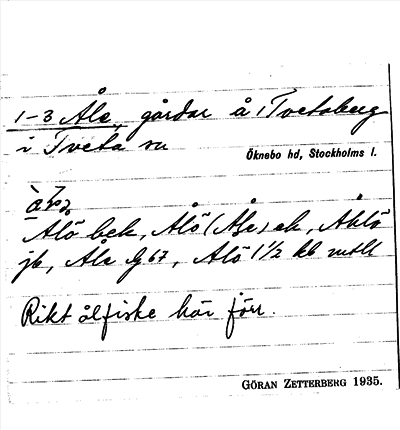 1-3 Åle, gårdar å Tvetaberg
i Tveta sn
Öknebo hd, Stockholms l.
Ålö bek, Ålö (Åle) ek, Åhlö
jb, Åle G 67, Ålö 1 1/2 kb mtll
Rikt ålfiske här förr.
GÖRAN ZETTERBERG 1935.